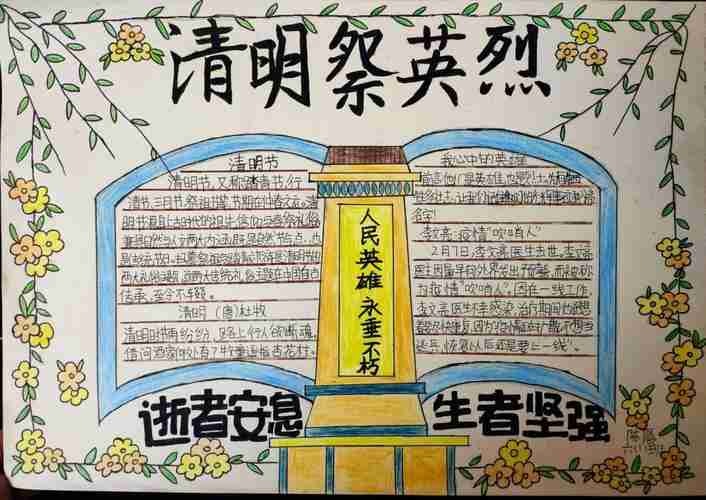 清明祭英烈
清明节
清明节,又称踏青节、行
清节、三月节、祭祖节等,节期在仲春之
明节源自上古时代的祖先信仰与春祭礼俗,
兼具自然与人文两大内涵,既是自然节气点,也
是传统节日,扫墓祭祖与踏青郊游是清明节的
两大礼俗主题,这两大传统礼俗主题在中国自古
传承,至今不辍。
清明 (唐)杜牧
清明时节雨纷纷,路上行人欲断魂。
借问酒家何处有?牧童遥指杏花村。
人民英雄永垂不朽
我心中的英雄
李文亮:疫情"吹哨人"
2月7日,李文亮医生去世,李文亮
医生因最早向外界发出预警,而被称
为疫情"吹哨人",因在一线工作,
李文亮医生不幸感染,治疗期间他
逃兵,恢复以后还是要上一线"。
逝者安息
生者坚强